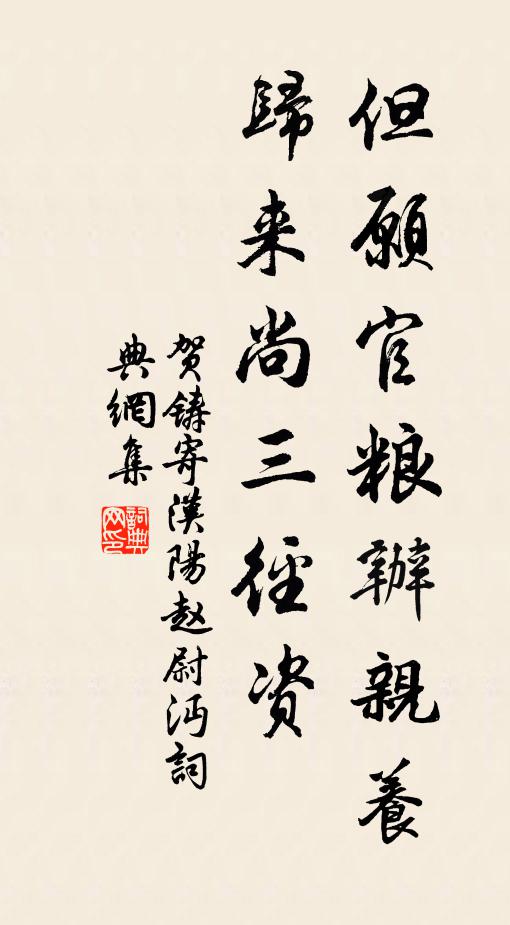 但願官粮辦親養
歸来尚三徑资
贺鑄寄漢陽赵尉沔詞
典網集
詞典
网印